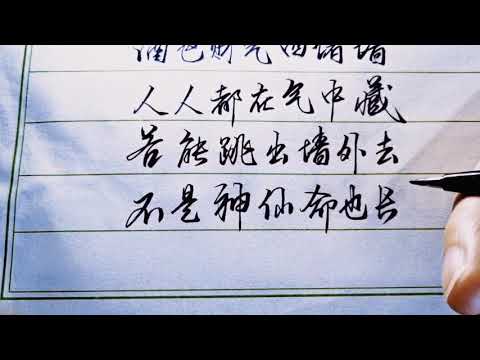 酒色财气四堵墙
人人都在气中藏
若能跳出墙外去
不是神仙命也长